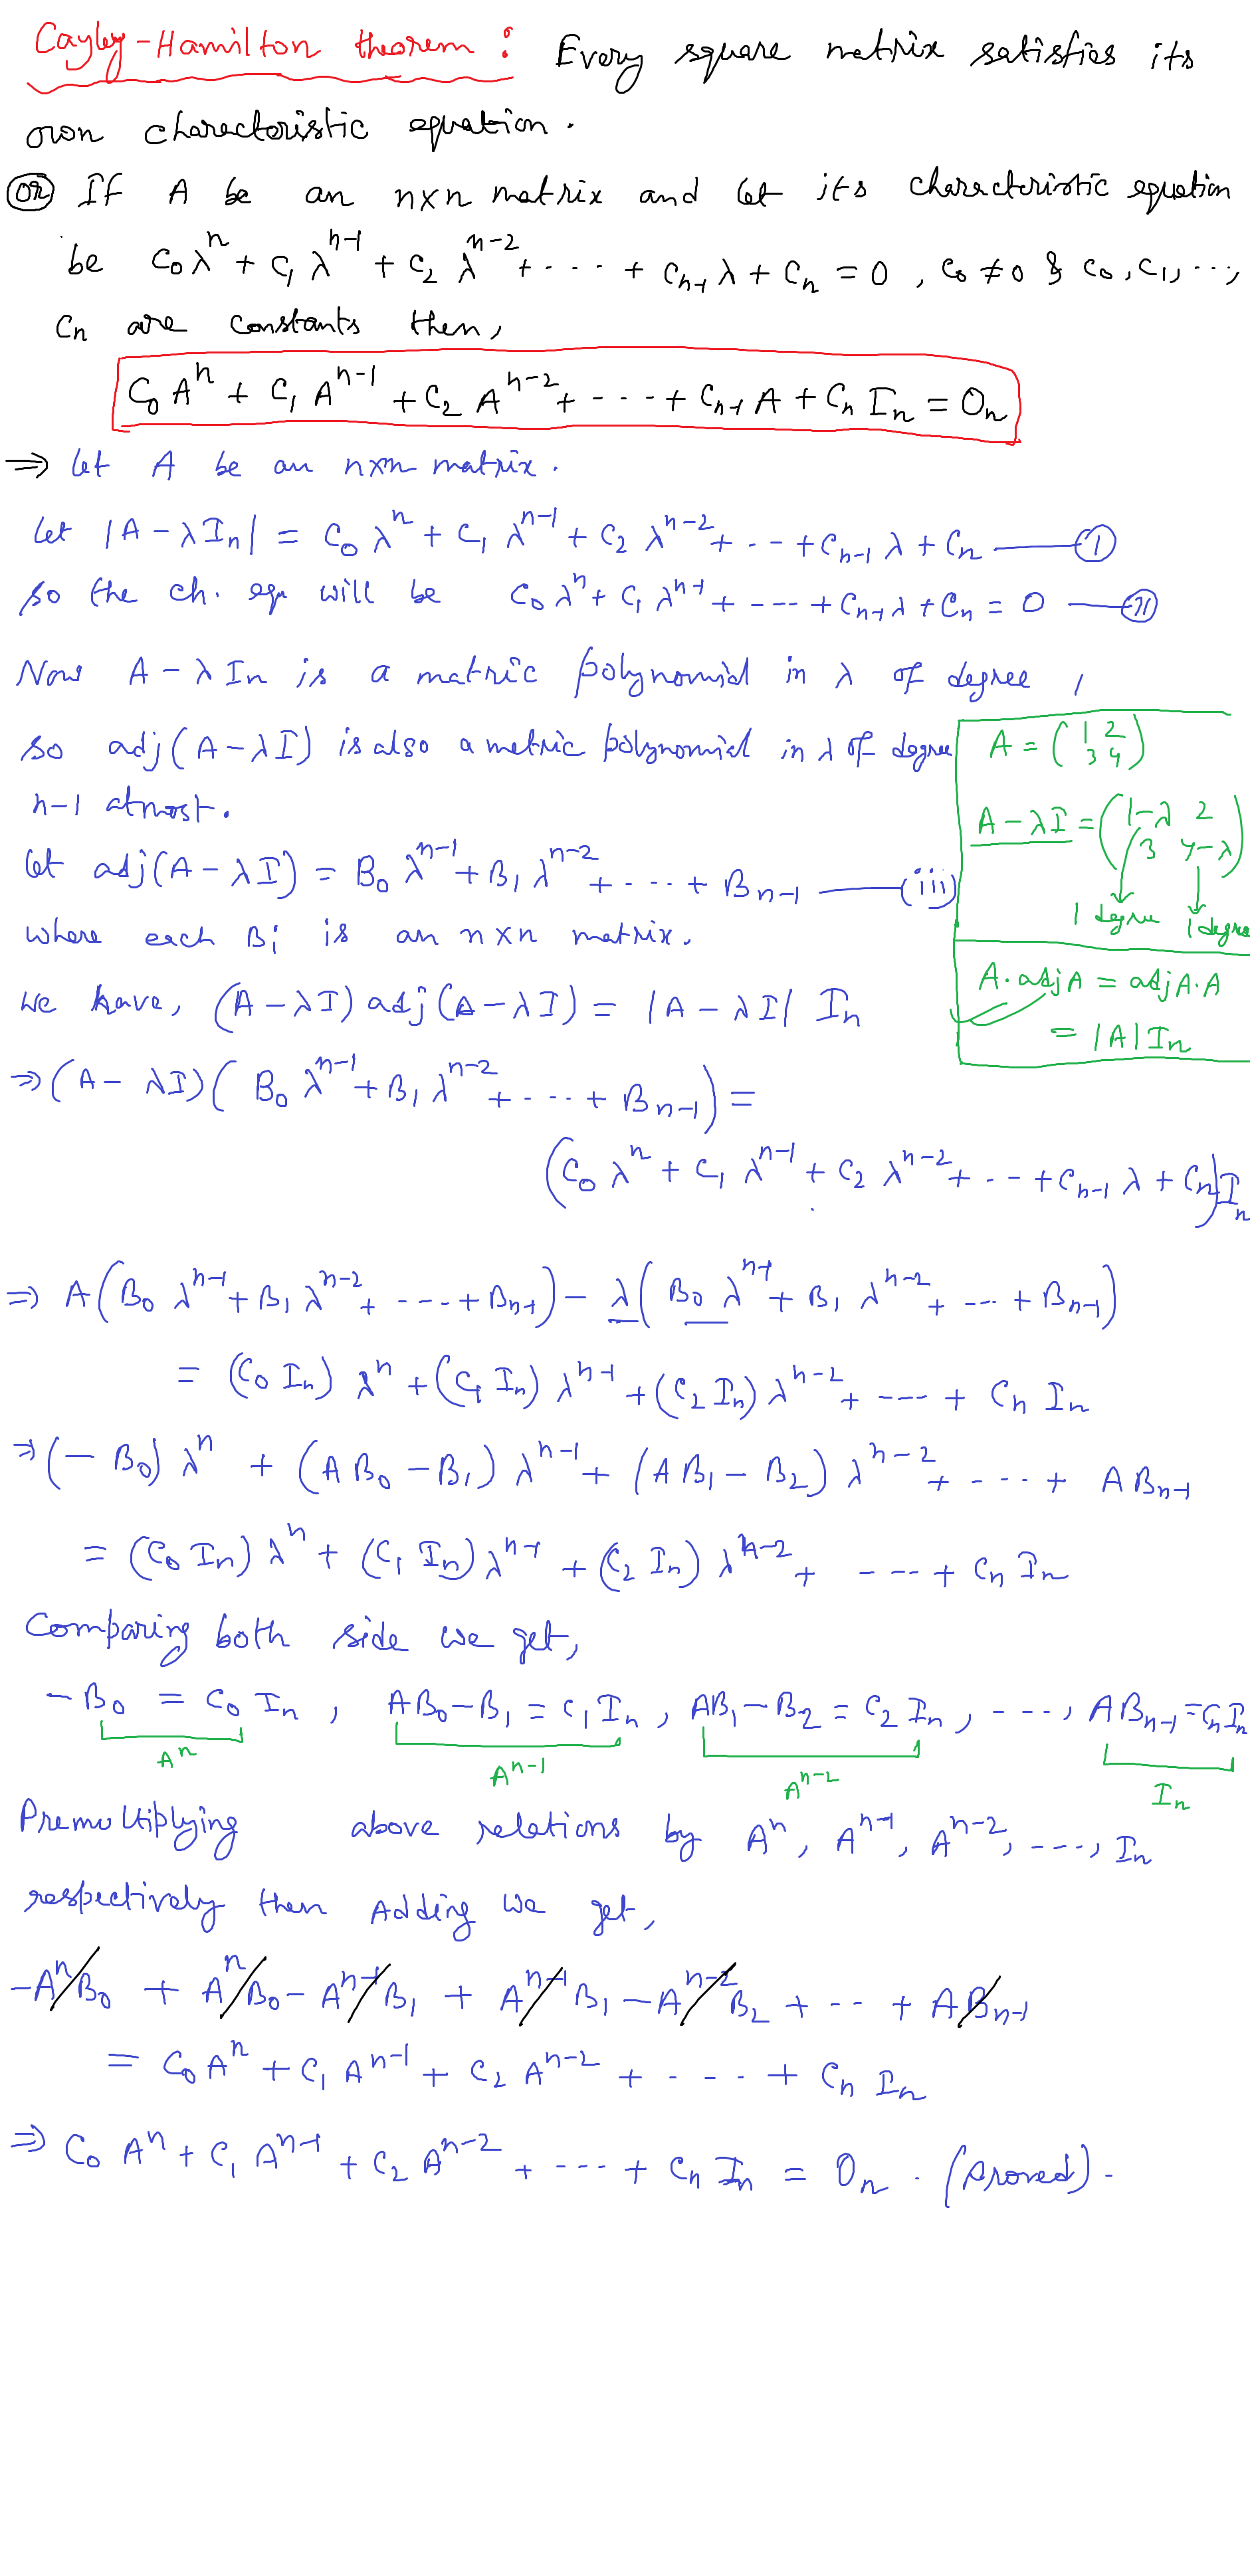 Cayley-Hamilton theorem : Every square matrix satisfies its
own characteristic equation.
(OR) If A be an n×n matrix and let its characteristic equation
be C₀λⁿ + C₁λⁿ⁻¹ + C₂λⁿ⁻² + ---- + Cₙ₋₁λ + Cₙ = 0 , C₀ ≠ 0 & C₀, C₁, ...,
Cₙ are constants then,
C₀Aⁿ + C₁Aⁿ⁻¹ + C₂Aⁿ⁻² + ---- + Cₙ₋₁A + CₙIₙ = Oₙ
⇒ Let A be an n×n matrix.
Let |A - λIₙ| = C₀λⁿ + C₁λⁿ⁻¹ + C₂λⁿ⁻² + --- + Cₙ₋₁λ + Cₙ —— (I)
So the ch. eqn will be C₀λⁿ + C₁λⁿ⁻¹ + ---- + Cₙ₋₁λ + Cₙ = 0 —— (II)
Now A - λIₙ is a matric polynomial in λ of degree 1
so adj(A - λI) is also a metric polynomial in λ of degree
n-1 atmost.
Let adj(A - λI) = B₀λⁿ⁻¹ + B₁λⁿ⁻² + ---- + Bₙ₋₁ —— (iii)
where each Bᵢ is an n×n matrix.
We have, (A - λI) adj(A - λI) = |A - λI| Iₙ
A = (1 2
3 4)
A - λI = (1-λ 2
3 4-λ)
1 degree 1 degree
A.adjA = adjA.A
= |A|Iₙ
⇒ (A - λI)(B₀λⁿ⁻¹ + B₁λⁿ⁻² + ---- + Bₙ₋₁) =
(C₀λⁿ + C₁λⁿ⁻¹ + C₂λⁿ⁻² + --- + Cₙ₋₁λ + Cₙ)Iₙ
⇒ A(B₀λⁿ⁻¹ + B₁λⁿ⁻² + ---- + Bₙ₋₁) - λ(B₀λⁿ⁻¹ + B₁λⁿ⁻² + --- + Bₙ₋₁)
= (C₀Iₙ)λⁿ + (C₁Iₙ)λⁿ⁻¹ + (C₂Iₙ)λⁿ⁻² + ---- + CₙIₙ
⇒ (-B₀)λⁿ + (AB₀ - B₁)λⁿ⁻¹ + (AB₁ - B₂)λⁿ⁻² + ---- + ABₙ₋₁
= (C₀Iₙ)λⁿ + (C₁Iₙ)λⁿ⁻¹ + (C₂Iₙ)λⁿ⁻² + ---- + CₙIₙ
Comparing both side we get,
-B₀ = C₀Iₙ , AB₀ - B₁ = C₁Iₙ , AB₁ - B₂ = C₂Iₙ , ----, ABₙ₋₁ = CₙIₙ
Aⁿ Aⁿ⁻¹ Aⁿ⁻² Iₙ
Premultiplying above relations by Aⁿ, Aⁿ⁻¹, Aⁿ⁻², ----, Iₙ
respectively then Adding we get,
-AⁿB₀ + AⁿB₀ - Aⁿ⁻¹B₁ + Aⁿ⁻¹B₁ - Aⁿ⁻²B₂ + --- + ABₙ₋₁
= C₀Aⁿ + C₁Aⁿ⁻¹ + C₂Aⁿ⁻² + ---- + CₙIₙ
⇒ C₀Aⁿ + C₁Aⁿ⁻¹ + C₂Aⁿ⁻² + ---- + CₙIₙ = Oₙ . (Proved).